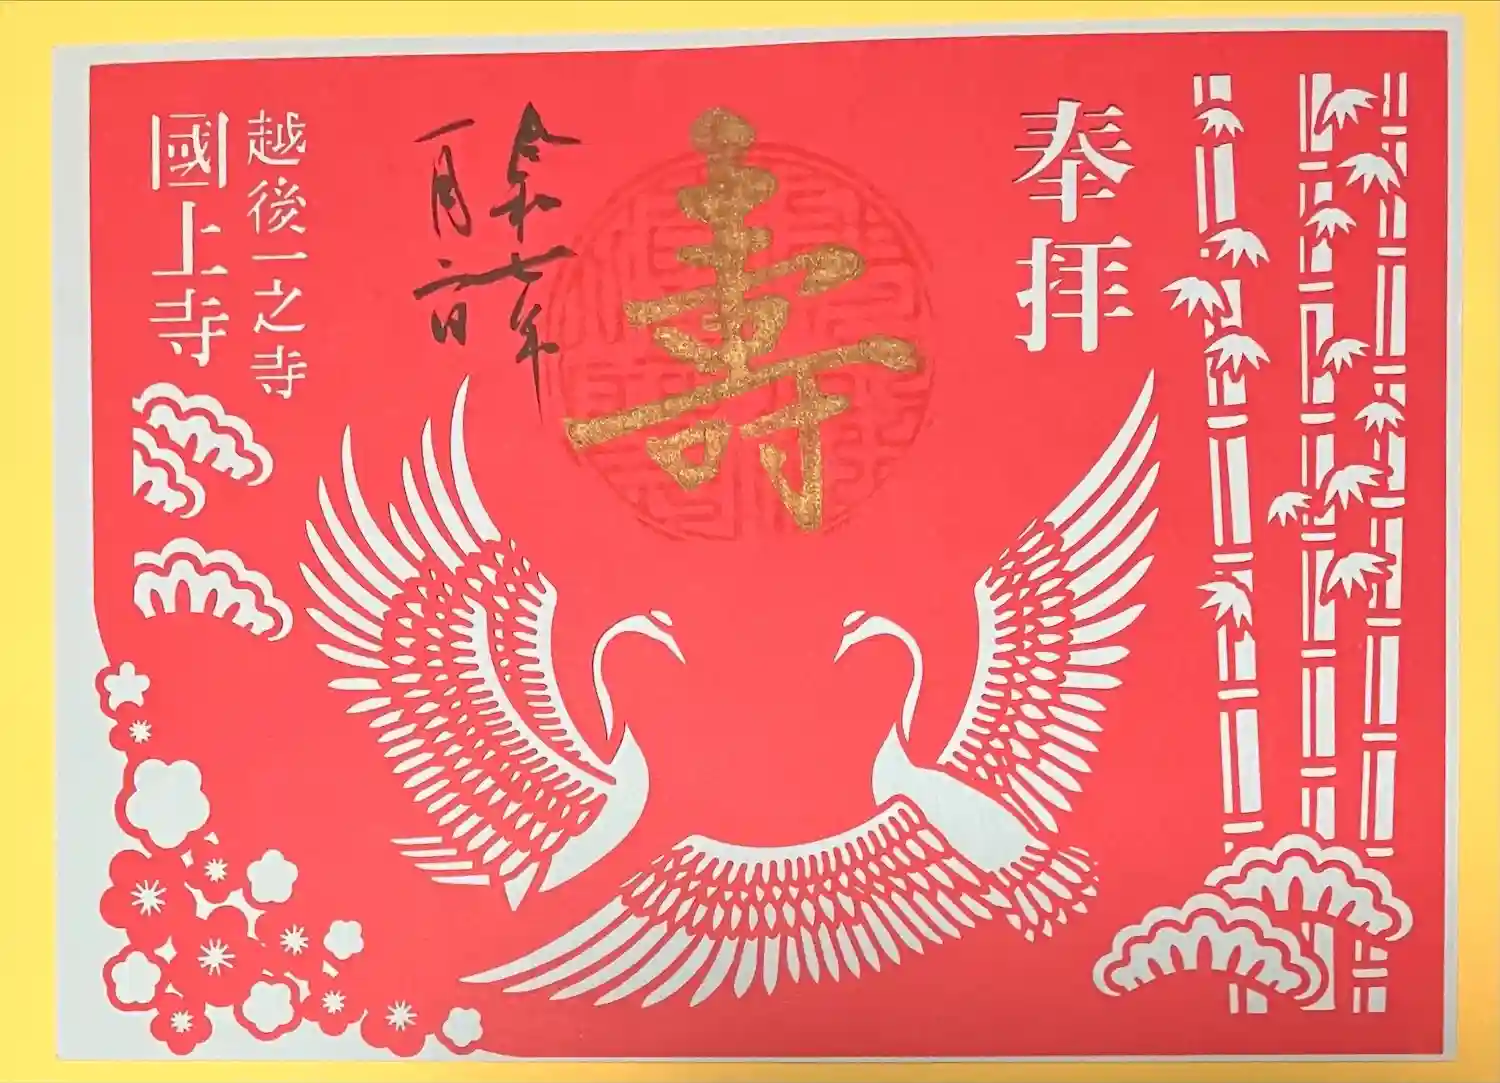 奉拝
寿
令和七年
一月六日
越後一之寺
國上寺